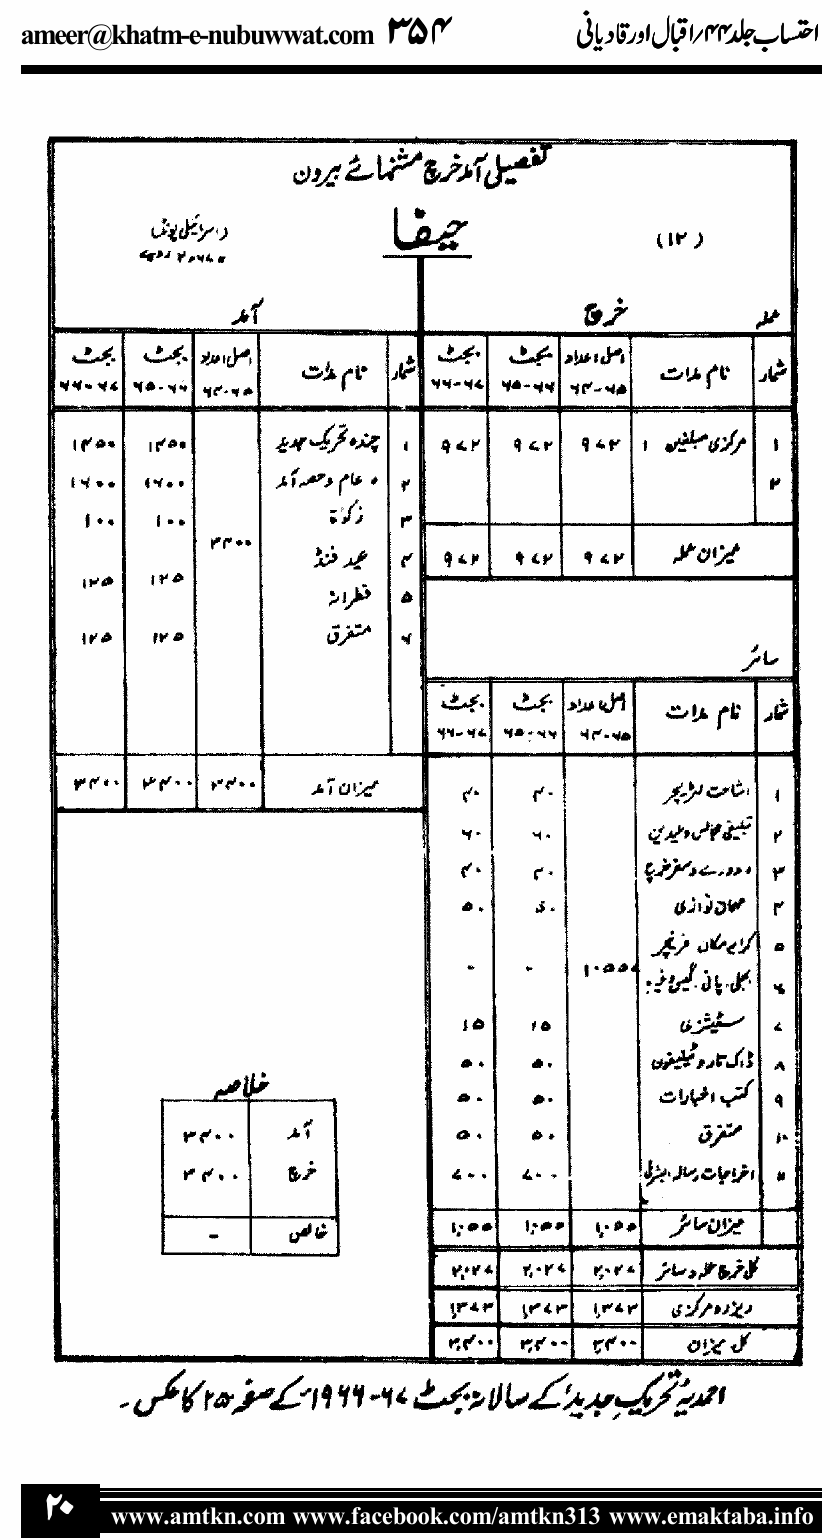 ameer@khatm-e-nubuwwat.com ۳۵۴ احتساب جلد۴۴؍اقبال اور قادیانی
تفصیلی آمد خرچ مشنہائے بیرون
(۱۲) حیفا
خرچ
عملہ
شمار نام مدات اصل اعداد ۶۵-۶۴ بجٹ ۶۶-۶۵ بجٹ ۶۷-۶۶
۱ مرکزی مبلغین ۱ ۹۷۲ ۹۷۲ ۹۷۲
۲
میزان عملہ ۹۷۲ ۹۷۲ ۹۷۲
سائر
شمار نام مدات اصل اعداد ۶۵-۶۴ بجٹ ۶۶-۶۵ بجٹ ۶۷-۶۶
۱ اشاعت لٹریچر ۴۰ ۴۰
۲ تبلیغی مجالس و عیدین ۶۰ ۶۰
۳ دورے و سفر خرچ ۴۰ ۴۰
۴ مہمان نوازی ۵۰ ۵۰
۵ کرایہ مکان فرنیچر
۶ بجلی۔ پانی۔ گیس وغیرہ - -
۷ سٹیشنری ۱۵ ۱۵
۸ ڈاک تار و ٹیلیفون ۵۰ ۵۰
۹ کتب اخبارات ۵۰ ۵۰
۱۰ متفرق ۵۰ ۵۰
اخراجات رسالہ ۷۰۰ ۷۰۰
میزان سائر ۱,۰۵۵ ۱,۰۵۵ ۱,۰۵۵
کل خرچ عملہ و سائر ۲,۰۲۷ ۲,۰۲۷ ۲,۰۲۷
ریزرو مرکزی ۱,۳۷۳ ۱,۳۷۳ ۱,۳۷۳
کل میزان ۳,۴۰۰ ۳,۴۰۰ ۳,۴۰۰
(اسرائیلی پونڈ)
آمد
شمار نام مدات اصل اعداد ۶۵-۶۴ بجٹ ۶۶-۶۵ بجٹ ۶۷-۶۶
۱ چندہ تحریک جدید ۱۴۵۰ ۱۴۵۰
۲ 〃 عام و حصہ آمد ۱۶۰۰ ۱۶۰۰
۳ زکوٰۃ ۱۰۰ ۱۰۰
۳۴۰۰
۴ عید فنڈ
۱۲۵ ۱۲۵
۵ فطرانہ
۶ متفرق ۱۲۵ ۱۲۵
میزان آمد ۳۴۰۰ ۳۴۰۰ ۳۴۰۰
خلاصہ
آمد ۳۴۰۰
خرچ ۳۴۰۰
خالص -
احمدیہ تحریکِ جدید کے سالانہ بجٹ ۶۷-۱۹۶۶ء کے صفحہ ۲۵ کا عکس۔
۲۰ www.amtkn.com www.facebook.com/amtkn313 www.emaktaba.info